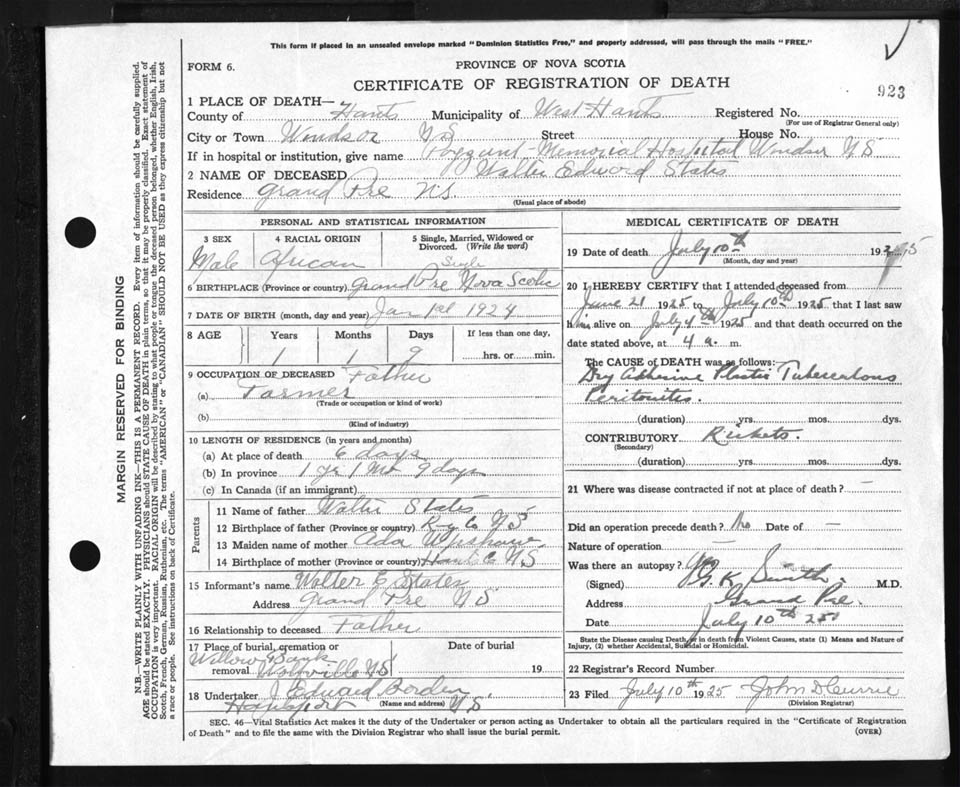 This form if placed in an unsealed envelope marked "Dominion Statistics Free," and properly addressed, will pass through the mails "FREE."
FORM 6.
PROVINCE OF NOVA SCOTIA
CERTIFICATE OF REGISTRATION OF DEATH
923
1 PLACE OF DEATH—
County of Hants Municipality of West Hants Registered No.
(For use of Registrar General only)
City or Town Windsor N S Street House No.
If in hospital or institution, give name Payzant-Memorial Hospital Windsor N S
2 NAME OF DECEASED Walter Edward States
Residence Grand Pre N.S.
(Usual place of abode)
PERSONAL AND STATISTICAL INFORMATION
3 SEX Male
4 RACIAL ORIGIN African
5 Single, Married, Widowed or Divorced. (Write the word) Single
6 BIRTHPLACE (Province or country) Grand Pre Nova Scotia
7 DATE OF BIRTH (month, day and year) Jan 1st 1924
8 AGE Years Months Days If less than one day,
1 1 9 hrs. or min.
9 OCCUPATION OF DECEASED Father
(a) Farmer
(Trade or occupation or kind of work)
(b)
(Kind of industry)
10 LENGTH OF RESIDENCE (in years and months)
(a) At place of death 6 days
(b) In province 1 yr 1 Mo 9 days
(c) In Canada (if an immigrant)
Parents
11 Name of father Walter States
12 Birthplace of father (Province or country) Kgs Co N S
13 Maiden name of mother Ada Upshaw
14 Birthplace of mother (Province or country) Hants Co N S
15 Informant's name Walter E States
Address Grand Pre N S
16 Relationship to deceased Father
17 Place of burial, cremation or removal Date of burial
Willow Bank
Wolfville N S 19
18 Undertaker J Edward Borden
Hantsport (Name and address) N S
MEDICAL CERTIFICATE OF DEATH
19 Date of death July 10th 192 1925
(Month, day and year)
20 I HEREBY CERTIFY that I attended deceased from
June 21 1925 to July 10th 1925 that I last saw
him alive on July 4th 1925 and that death occurred on the
date stated above, at 4 a. m.
The CAUSE OF DEATH was as follows:
Dry Adhesive Plastic Tuberculous
Peritonitis.
(duration) yrs. mos. dys.
CONTRIBUTORY Rickets.
(Secondary)
(duration) yrs. mos. dys.
21 Where was disease contracted if not at place of death? —
Did an operation precede death? No Date of —
Nature of operation —
Was there an autopsy?
(Signed) G. K. Smith M.D.
Address Grand Pre.
Date July 10th 25
State the Disease causing Death, or in death from Violent Causes, state (1) Means and Nature of Injury, (2) whether Accidental, Suicidal or Homicidal.
22 Registrar's Record Number
23 Filed July 10th 1925 John D Currie
(Division Registrar)
SEC. 46—Vital Statistics Act makes it the duty of the Undertaker or person acting as Undertaker to obtain all the particulars required in the "Certificate of Registration
of Death" and to file the same with the Division Registrar who shall issue the burial permit. (OVER)
MARGIN RESERVED FOR BINDING
N.B.—WRITE PLAINLY WITH UNFADING INK—THIS IS A PERMANENT RECORD. Every item of information should be carefully supplied.
AGE should be stated EXACTLY. PHYSICIANS should STATE CAUSE OF DEATH in plain terms, so that it may be properly classified. Exact statement of
OCCUPATION is very important. RACIAL ORIGIN will be described by stating to what people or tongue the deceased person belonged, whether English, Irish,
Scotch, French, German, Russian, Ruthenian, etc. The terms "AMERICAN" or "CANADIAN" SHOULD NOT BE USED as they express citizenship but not
a race or people. See instructions on back of Certificate.